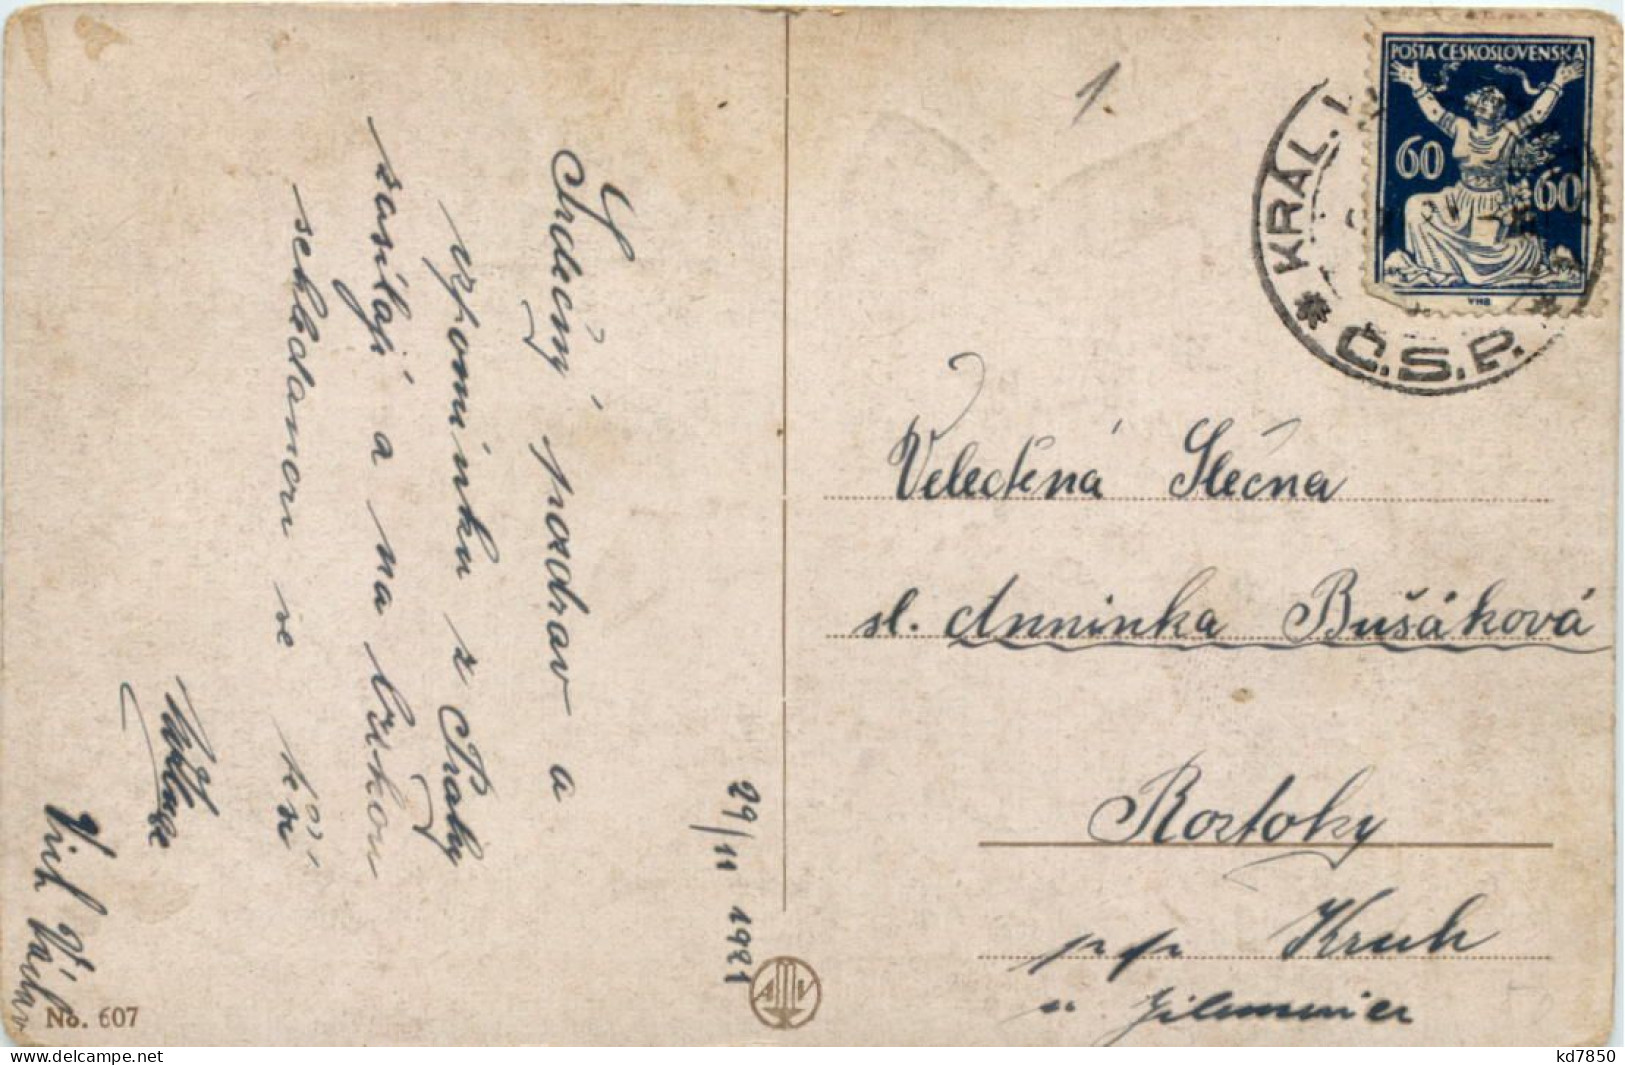 Srdečný pozdrav a
vzpomínku z Prahy
zasílají a na brzkou
schledanou se těší
Vích Václav
29/11 1921
No. 607
1.
POŠTA ČESKOSLOVENSKÁ
60
60
VHB
KRÁL.
Č.S.P.
Veleděná Slečna
sl. Anninka Bušáková
Roztoky
p. p. Kruh
u Jilemnice
A V
kd7850